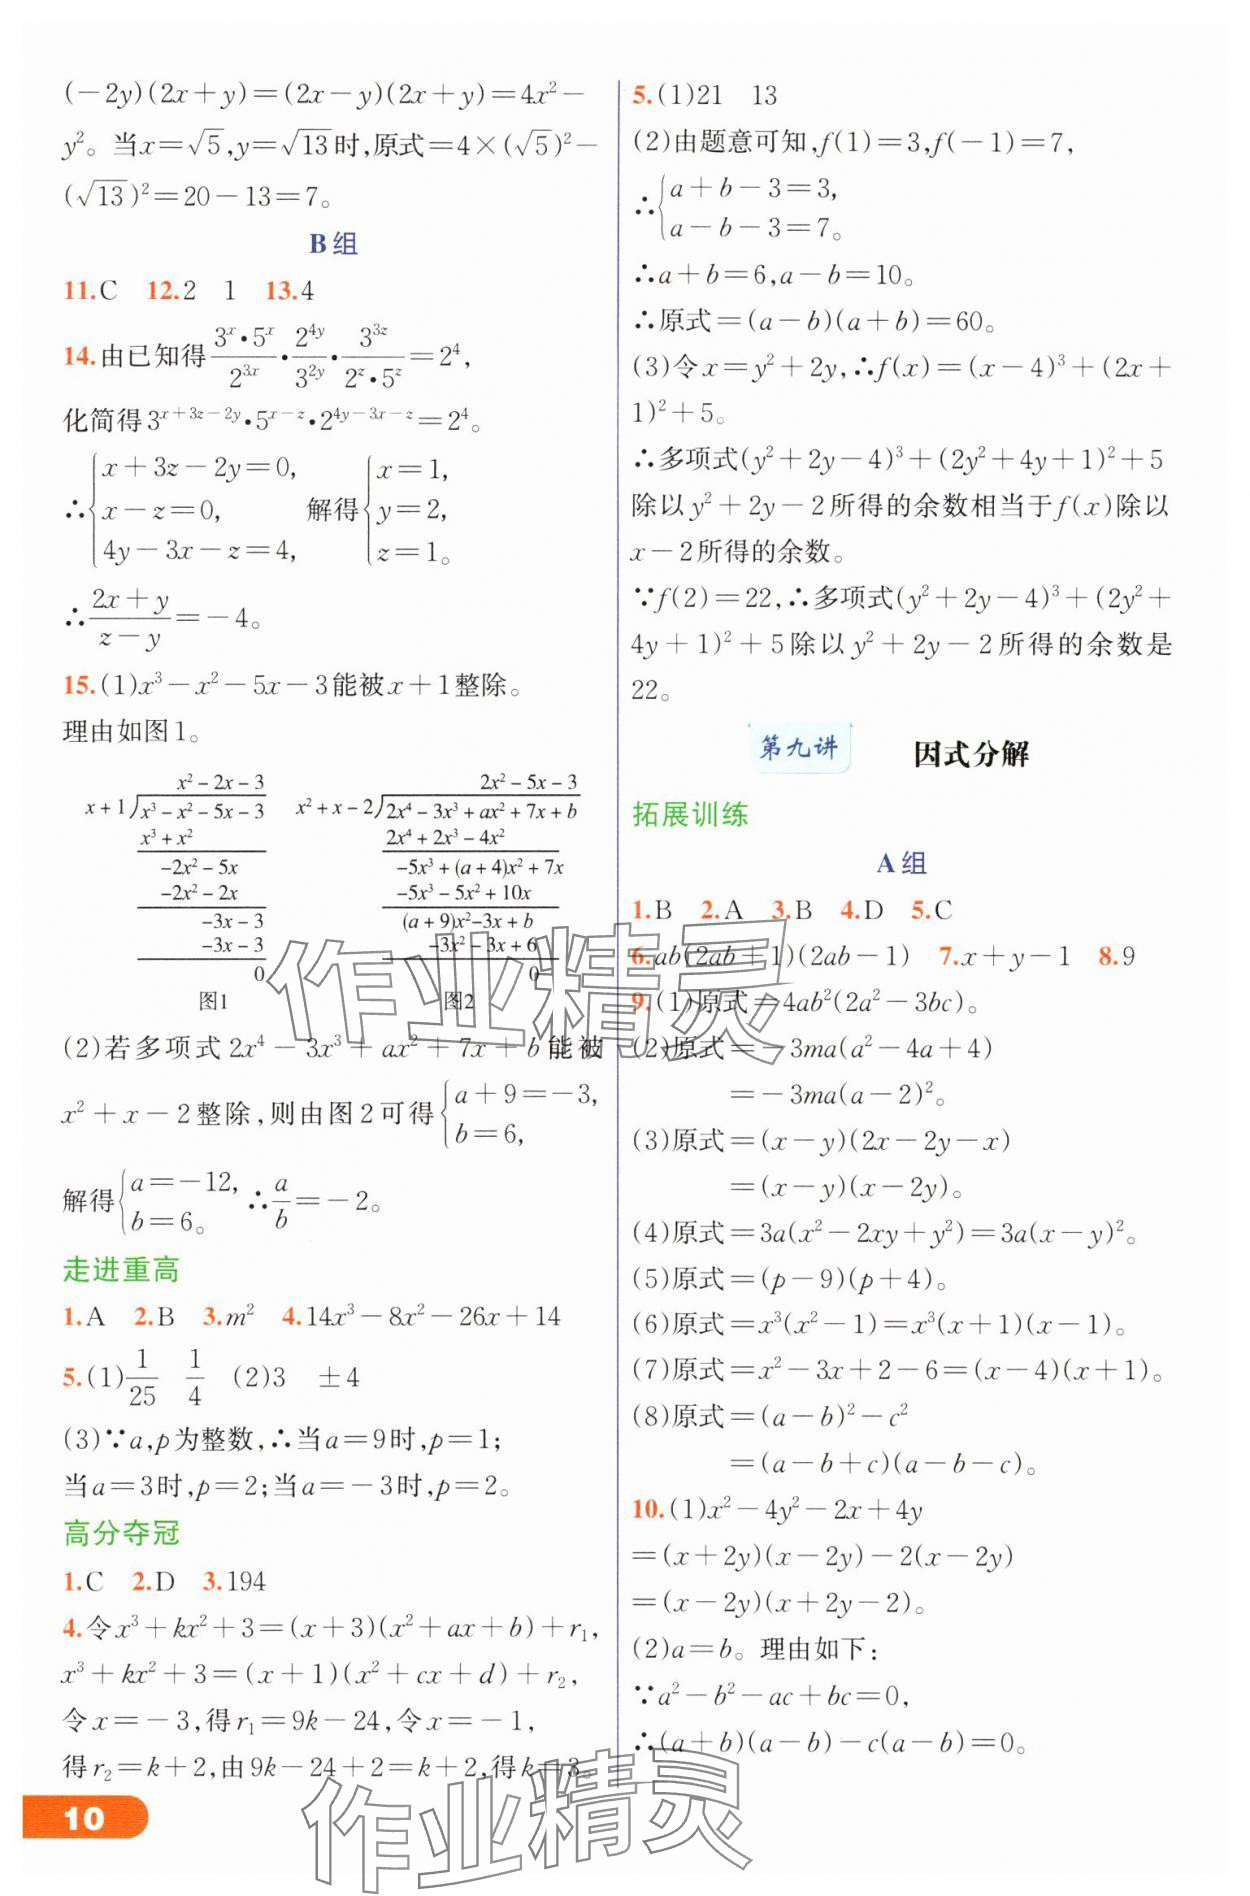 (−2y)(2x+y)=(2x−y)(2x+y)=4x²−
y²。当x=√5,y=√13时,原式=4×(√5)²−
(√13)²=20−13=7。
B组
11.C 12.2 1 13.4
14.由已知得(3ˣ·5ˣ)/(2³ˣ)·(2⁴ʸ)/(3²ʸ)·(3³ᶻ)/(2ᶻ·5ᶻ)=2⁴,
化简得3^(x+3z−2y)·5^(x−z)·2^(4y−3x−z)=2⁴。
∴{x+3z−2y=0, x−z=0, 4y−3x−z=4, 解得{x=1, y=2, z=1。
∴(2x+y)/(z−y)=−4。
15.(1)x³−x²−5x−3能被x+1整除。
理由如图1。
x²−2x−3
x+1)x³−x²−5x−3
x³+x²
−2x²−5x
−2x²−2x
−3x−3
−3x−3
0
图1
2x²−5x−3
x²+x−2)2x⁴−3x³+ax²+7x+b
2x⁴+2x³−4x²
−5x³+(a+4)x²+7x
−5x³−5x²+10x
(a+9)x²−3x+b
−3x²−3x+6
0
图2
(2)若多项式2x⁴−3x³+ax²+7x+b能被
x²+x−2整除,则由图2可得{a+9=−3, b=6,
解得{a=−12, b=6。 ∴a/b=−2。
走进重高
1.A 2.B 3.m² 4.14x³−8x²−26x+14
5.(1)1/25 1/4 (2)3 ±4
(3)∵a,p为整数,∴当a=9时,p=1;
当a=3时,p=2;当a=−3时,p=2。
高分夺冠
1.C 2.D 3.194
4.令x³+kx²+3=(x+3)(x²+ax+b)+r₁,
x³+kx²+3=(x+1)(x²+cx+d)+r₂,
令x=−3,得r₁=9k−24,令x=−1,
得r₂=k+2,由9k−24+2=k+2,得k=3。
10
5.(1)21 13
(2)由题意可知,f(1)=3,f(−1)=7,
∴{a+b−3=3, a−b−3=7。
∴a+b=6,a−b=10。
∴原式=(a−b)(a+b)=60。
(3)令x=y²+2y,∴f(x)=(x−4)³+(2x+
1)²+5。
∴多项式(y²+2y−4)³+(2y²+4y+1)²+5
除以y²+2y−2所得的余数相当于f(x)除以
x−2所得的余数。
∵f(2)=22,∴多项式(y²+2y−4)³+(2y²+
4y+1)²+5除以y²+2y−2所得的余数是
22。
第九讲 因式分解
拓展训练
A组
1.B 2.A 3.B 4.D 5.C
6.ab(2ab+1)(2ab−1) 7.x+y−1 8.9
9.(1)原式=4ab²(2a²−3bc)。
(2)原式=−3ma(a²−4a+4)
=−3ma(a−2)²。
(3)原式=(x−y)(2x−2y−x)
=(x−y)(x−2y)。
(4)原式=3a(x²−2xy+y²)=3a(x−y)²。
(5)原式=(p−9)(p+4)。
(6)原式=x³(x²−1)=x³(x+1)(x−1)。
(7)原式=x²−3x+2−6=(x−4)(x+1)。
(8)原式=(a−b)²−c²
=(a−b+c)(a−b−c)。
10.(1)x²−4y²−2x+4y
=(x+2y)(x−2y)−2(x−2y)
=(x−2y)(x+2y−2)。
(2)a=b。理由如下:
∵a²−b²−ac+bc=0,
∴(a+b)(a−b)−c(a−b)=0。
作业精灵
作业精灵